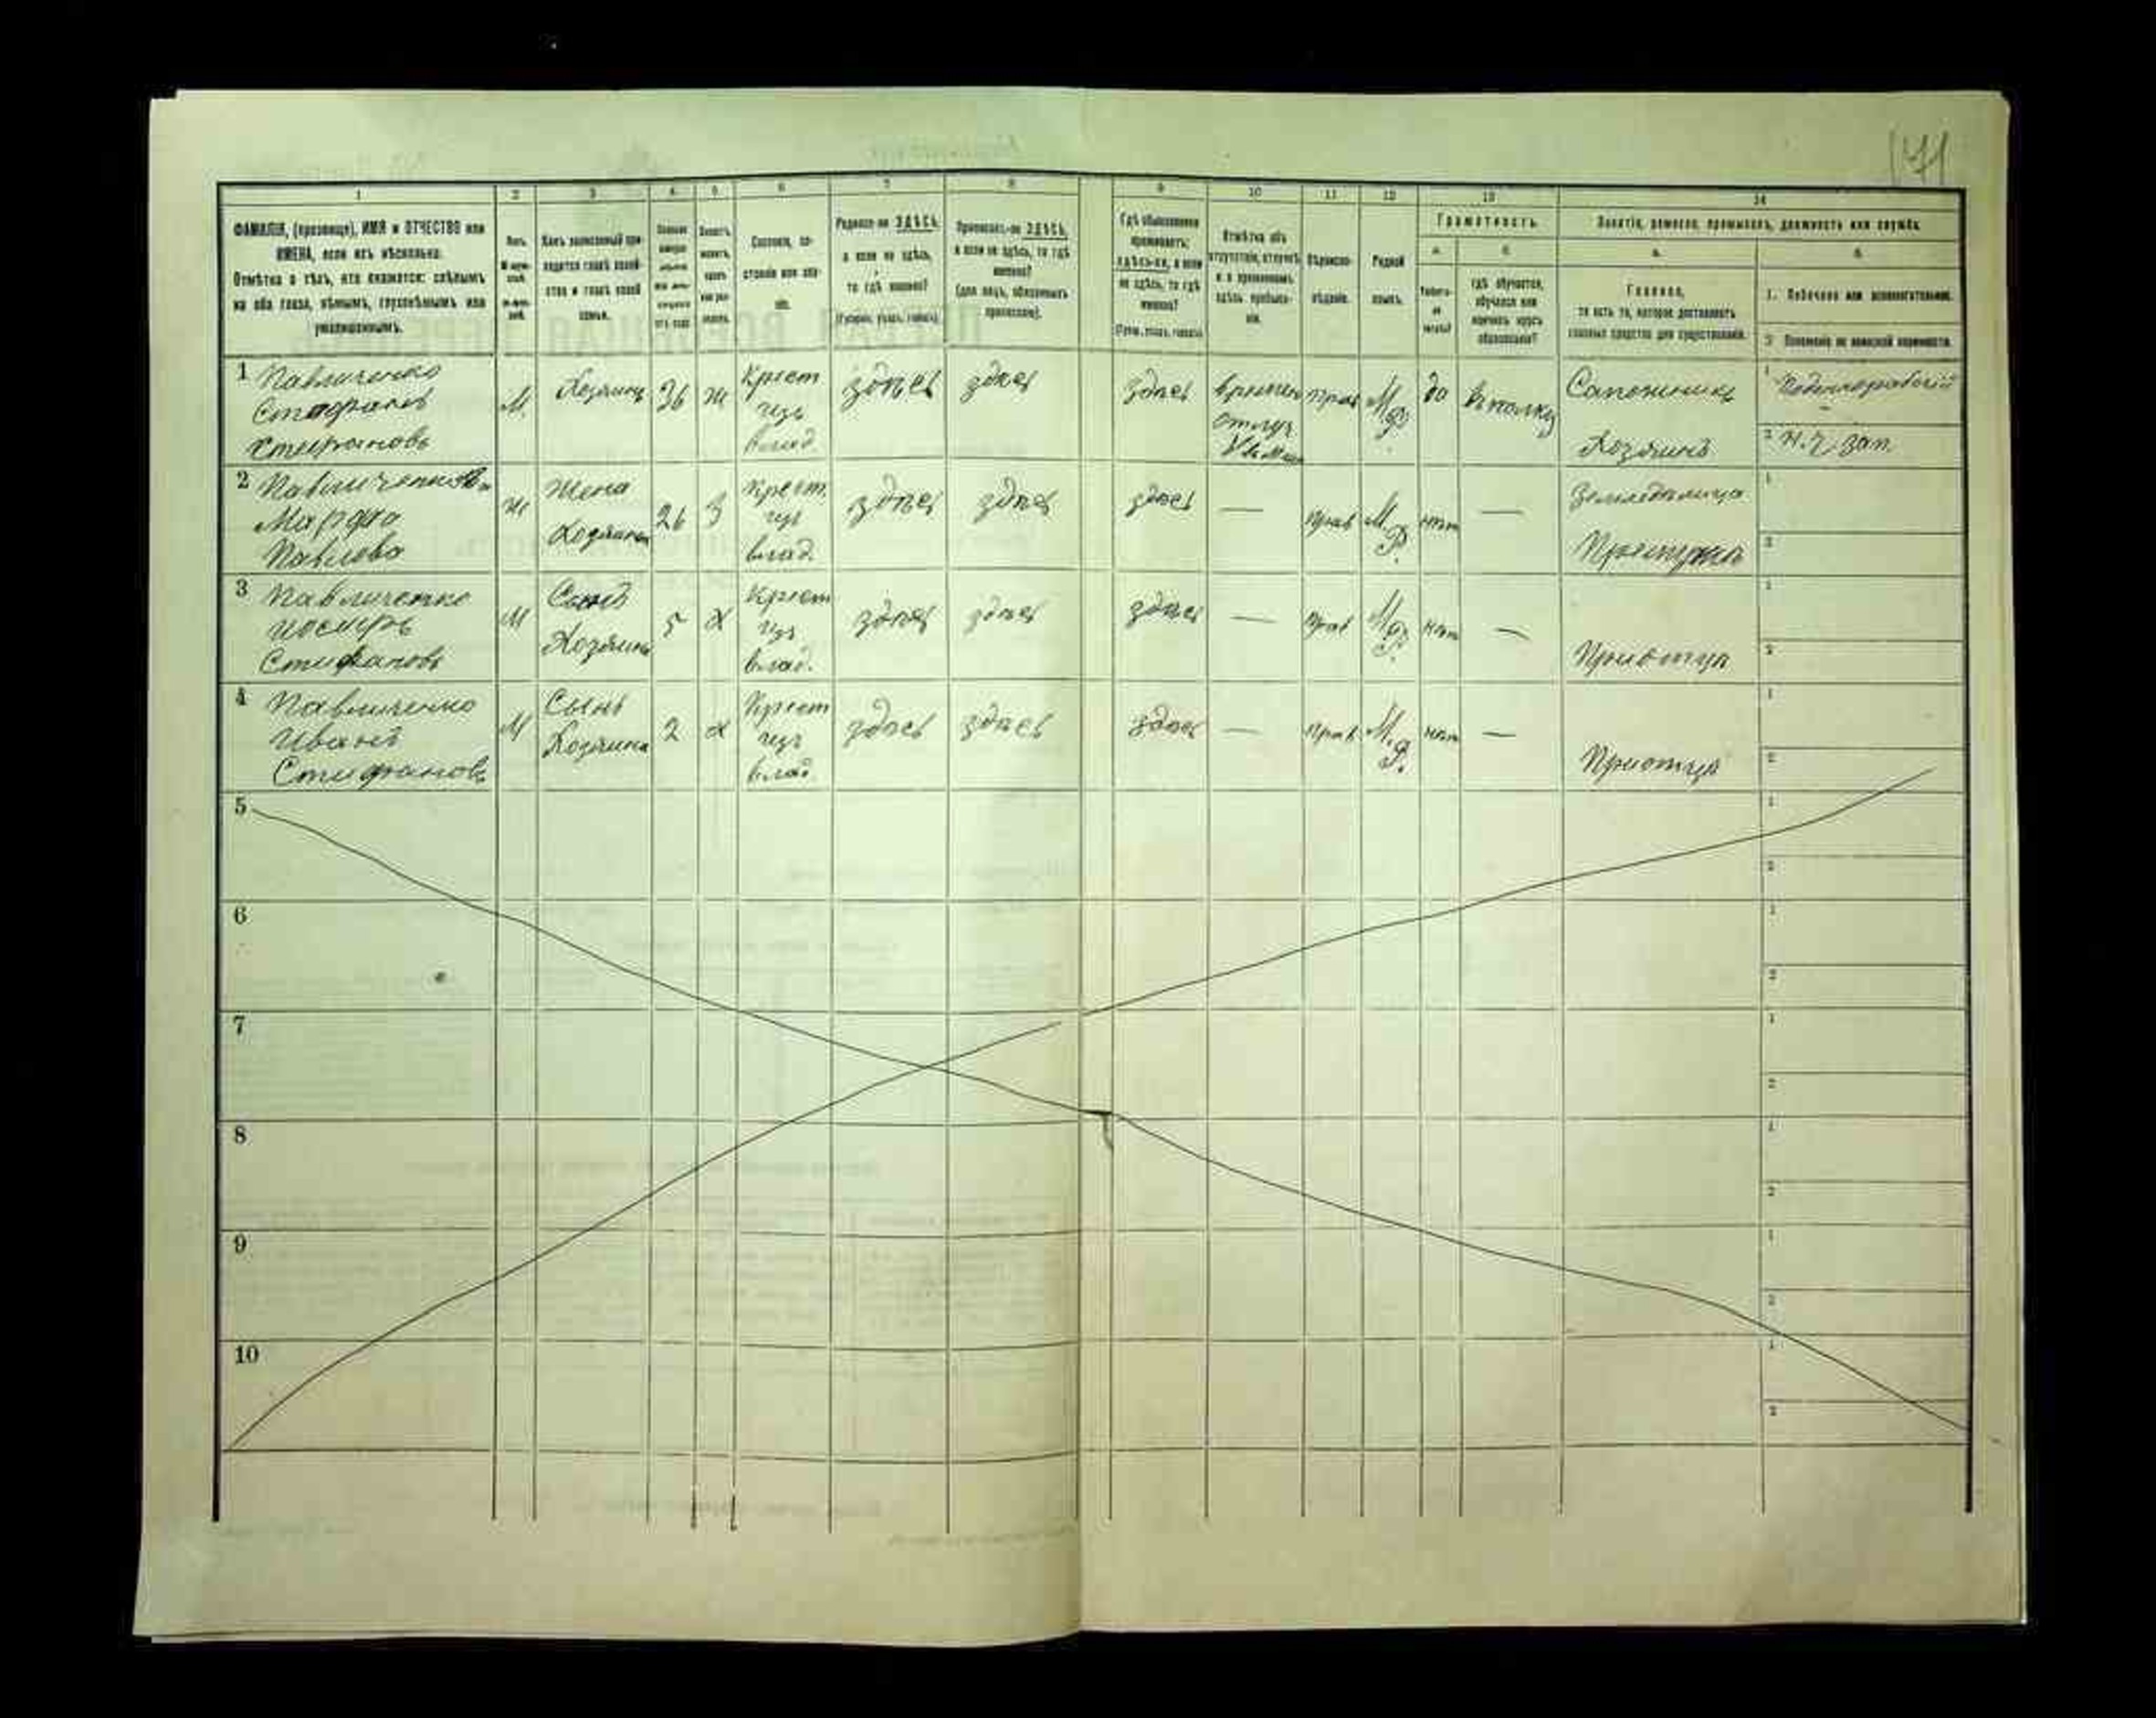 171
1 2 3 4 5 6 7 8 9 10 11 12 13 14
ФАМИЛІЯ, (прозвище), ИМЯ и ОТЧЕСТВО или
ИМЕНА, если ихъ нѣсколько.
Отмѣтка о тѣхъ, кто окажется: слѣпымъ
на оба глаза, нѣмымъ, глухонѣмымъ или
умалишеннымъ.
Полъ.
Какъ записанный при-
ходится главѣ хозяй-
ства и главѣ своей
семьи.
Сословіе, со-
стояніе или зва-
ніе.
Родился-ли ЗДѢСЬ,
а если не здѣсь,
то гдѣ именно?
(Губерн., уѣздъ, городъ).
Приписанъ-ли ЗДѢСЬ,
а если не здѣсь, то гдѣ
именно?
(для лицъ, обязанныхъ
припискою).
Гдѣ обыкновенно
проживаетъ:
здѣсь-ли, а если
не здѣсь, то гдѣ
именно?
(Губерн., уѣздъ, городъ).
Отмѣтка объ
отсутствіи, отлучкѣ
и о временномъ
здѣсь пребыва-
ніи.
Вѣроиспо-
вѣданіе.
Родной
языкъ.
Грамотность.
а. б.
гдѣ обучается,
обучался или
кончилъ курсъ
образованія?
Занятіе, ремесло, промыселъ, должность или служба.
а. б.
Главное,
то есть то, которое доставляетъ
главныя средства для существованія.
1. Побочное или вспомогательное.
2. Положеніе по воинской повинности.
1 Павличенко
Стефанъ
Стефановъ
М Хозяинъ 36 ж Крест
изъ
влад.
здѣсь здѣсь здѣсь
времен
отлуч
прав М.
Р.
да въ полку
Сапожникъ
Хозяинъ
1 Поденнорабочій
2 н. ч. зап.
2
Марфа
Павлова
ж Жена
Хозяина
26 З Крест.
изъ
влад.
здѣсь здѣсь здѣсь — Прав М.
Р.
нѣт —
Земледѣлица
При мужѣ
1
2
3 Павличенко
Иосифъ
Стефановъ
М Сынъ
Хозяина
5 х Крест
изъ
влад.
здѣсь здѣсь здѣсь — Прав М.
Р.
нѣт —
При отцѣ
1
2
4 Павличенко
Иванъ
Стефановъ
М Сынъ
Хозяина
2 х Крест
изъ
влад.
здѣсь здѣсь здѣсь — Прав М.
Р.
нѣт —
При отцѣ
1
2
5
1
2
6
1
2
7
1
2
8
1
2
9
1
2
10
1
2